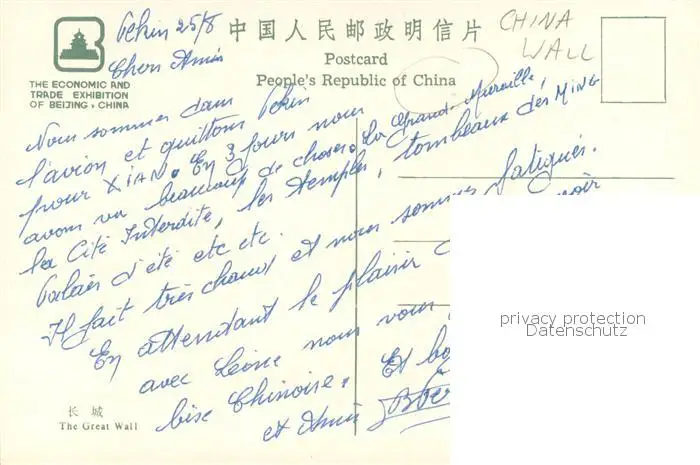 Pekin 25/8
中国人民邮政明信片
CHINA
WALL
Postcard
People's Republic of China
THE ECONOMIC AND
TRADE EXHIBITION
OF BEIJING · CHINA
Chers Amis
Nous sommes dans
l'avion et quittons Pekin
pour XIAN. En 3 jours nous
avons vu beaucoup de choses. La Grande Muraille,
la Cité Interdite, les temples, tombeaux des MING
Palais d'été etc etc.
Il fait très chaud et nous sommes fatigués.
En attendant le plaisir
avec nous vous
bise Chinoise. Et
et Amis
privacy protection
Datenschutz
长城
The Great Wall